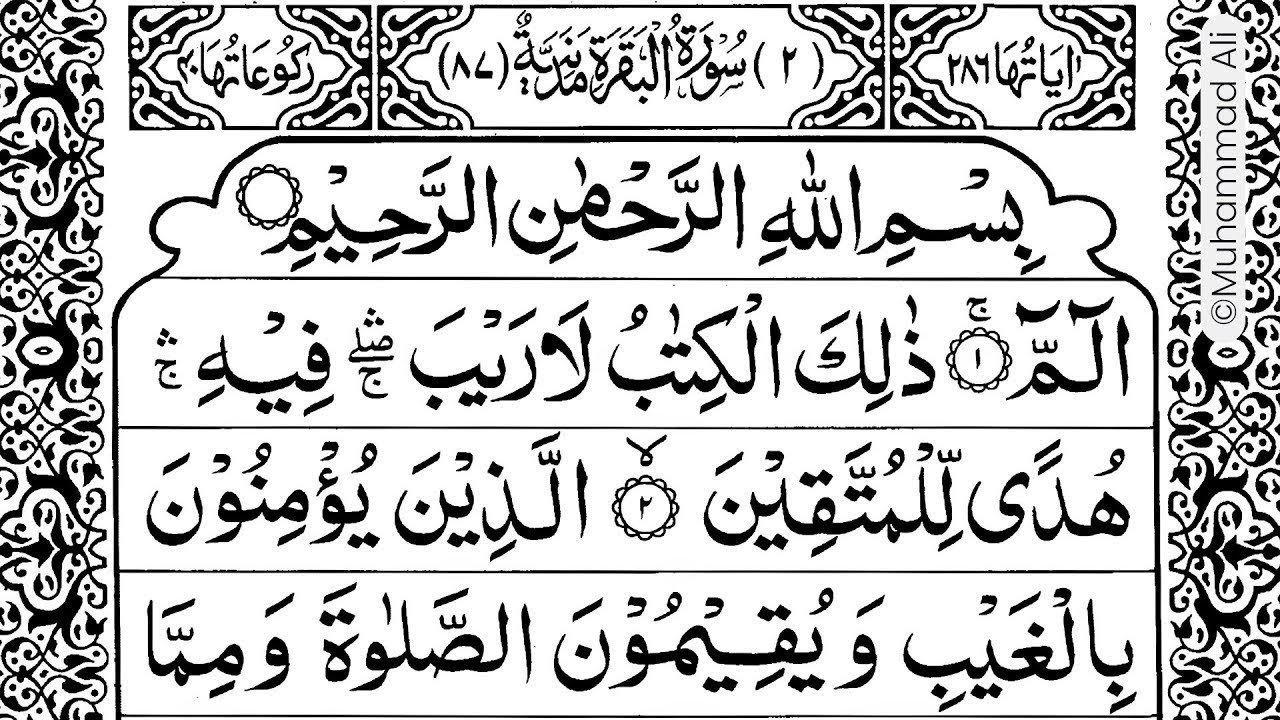 اٰيَاتُهَا ٢٨٦
(٢) سُوْرَةُ الْبَقَرَةِ مَدَنِيَّةٌ (٨٧)
رُكُوْعَاتُهَا ٤٠
بِسْمِ اللّٰهِ الرَّحْمٰنِ الرَّحِيْمِ
الٓمّٓ ۚ ١ ذٰلِكَ الْكِتٰبُ لَا رَيْبَ ۛۖۚ فِيْهِ ۛۚ
هُدًى لِّلْمُتَّقِيْنَ ۙ ٢ الَّذِيْنَ يُؤْمِنُوْنَ
بِالْغَيْبِ وَ يُقِيْمُوْنَ الصَّلٰوةَ وَ مِمَّا
©Muhammad Ali